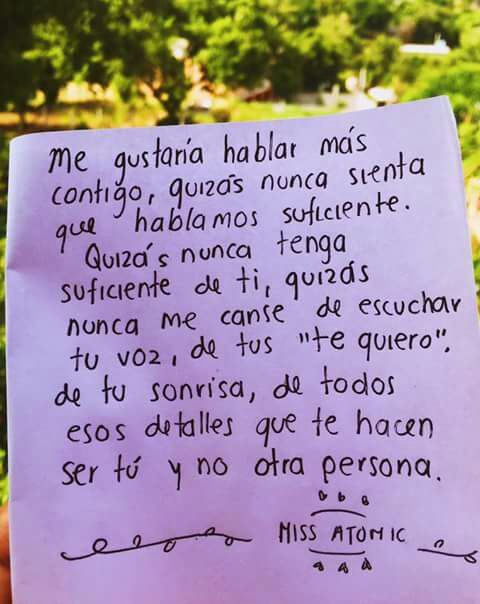 Me gustaría hablar más
contigo, quizás nunca sienta
que hablamos suficiente.
Quizás nunca tenga
suficiente de ti, quizás
nunca me canse de escuchar
tu voz, de tus "te quiero".
de tu sonrisa, de todos
esos detalles que te hacen
ser tú y no otra persona.
MISS ATOMIC